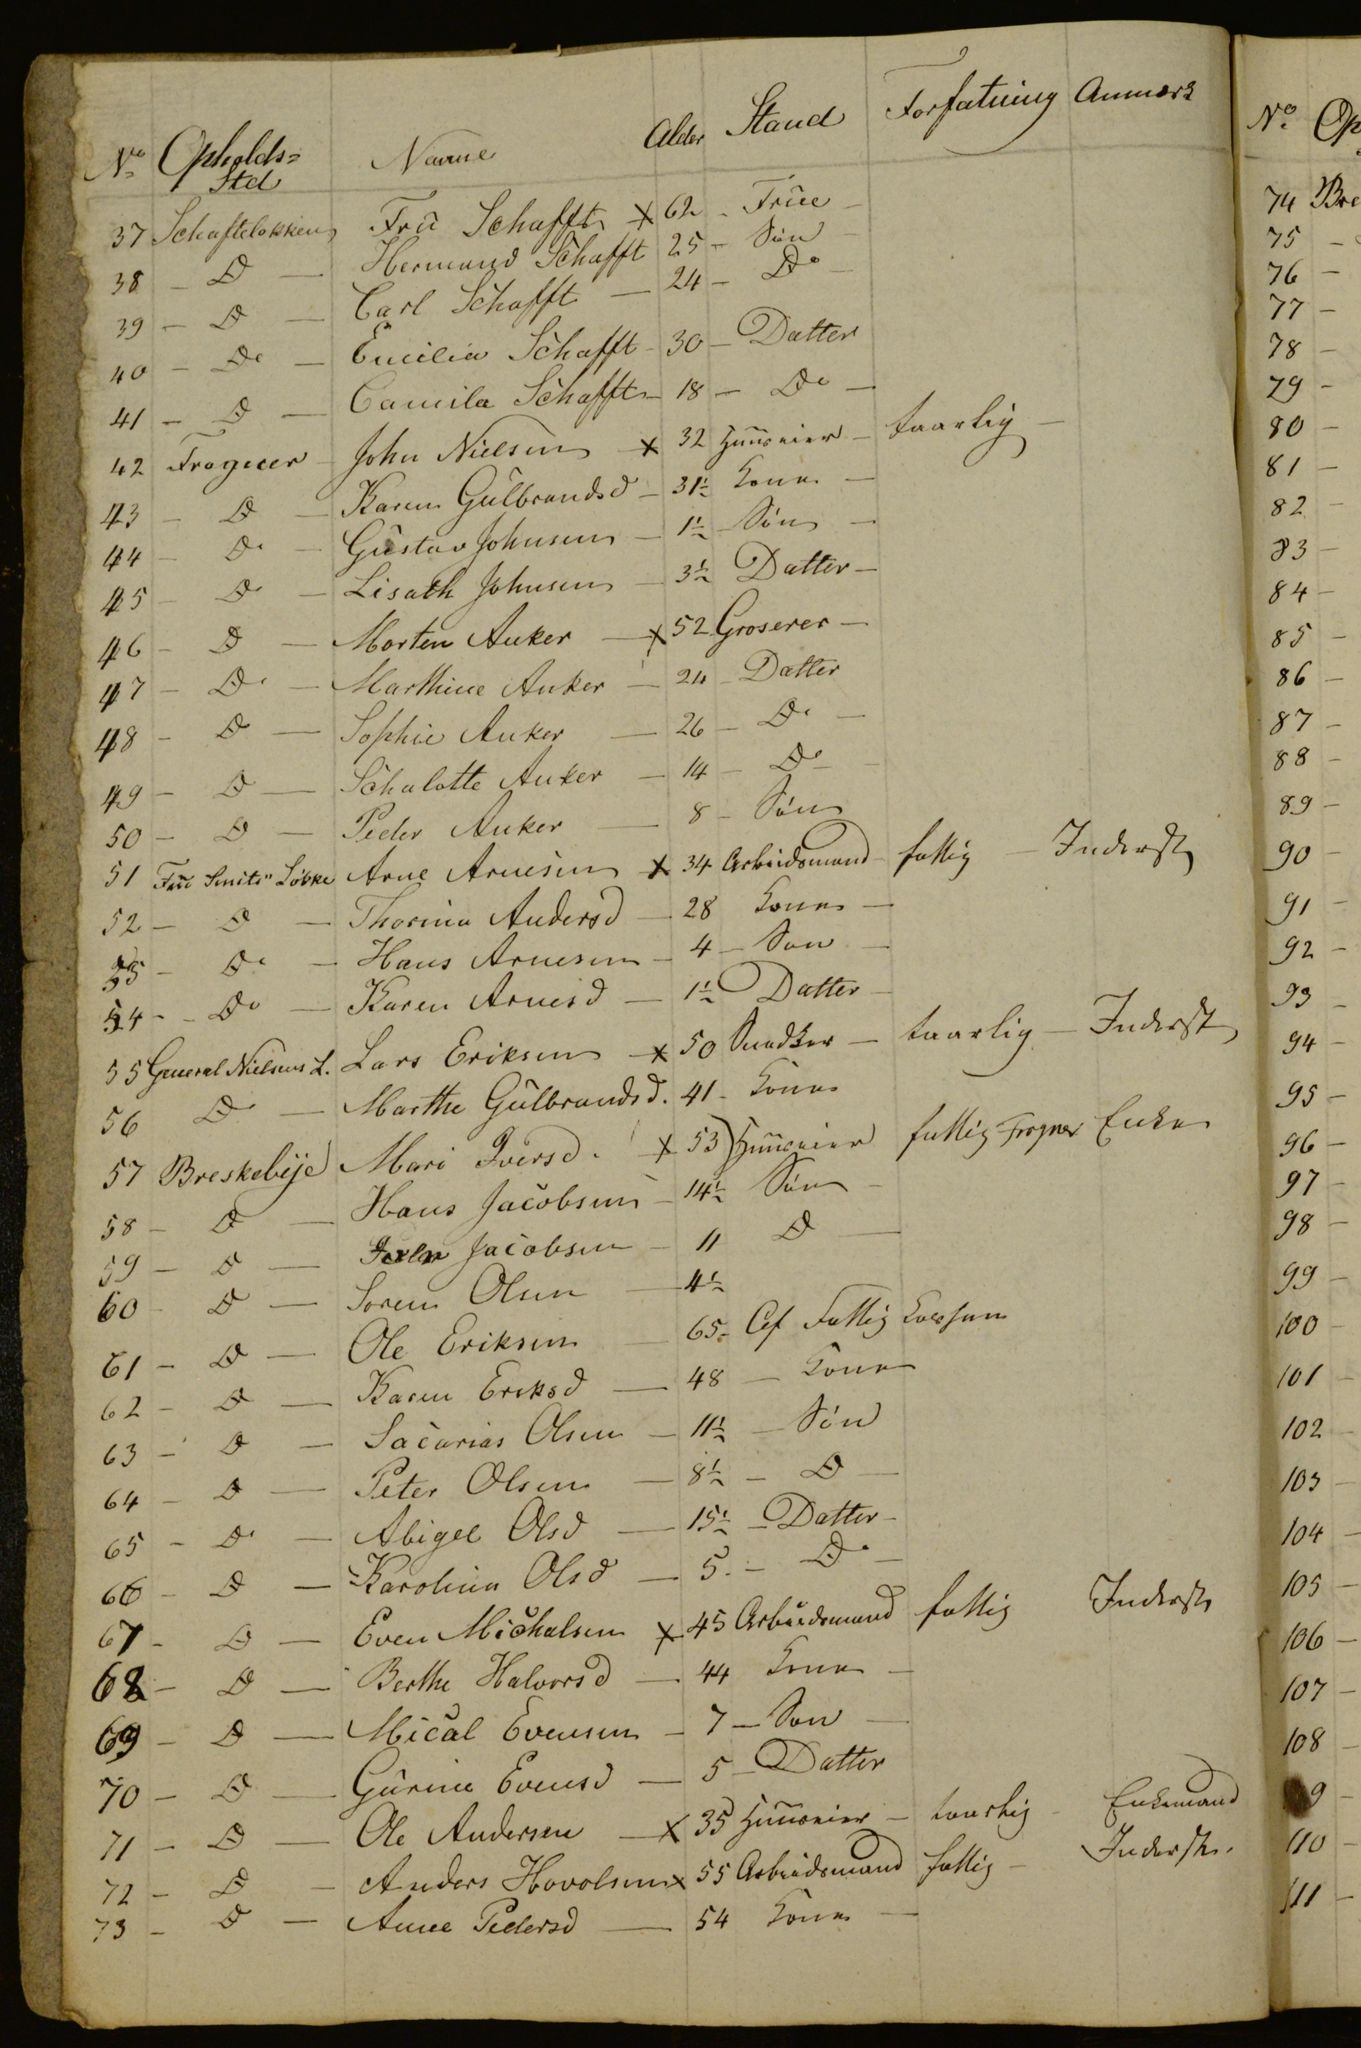 No Opholds= Navne Alder Stand Forfatning Anmærk
Sted
37 Schafteløkken Frü Schafft x 62 - Früe -
38 - D - Hermand Schafft 25 - Søn -
39 - D - Carl Schafft - 24 - Do -
40 - Do - Emilia Schafft - 30 - Datter
41 - D - Camila Schafft - 18 - Do -
42 Frogner - John Nielsen x 32 Huuseier - taarlig -
43 - D - Karen Gülbrandsd - 31½ Kone -
44 - Do - Güstav Johnsen - 1½ - Søn -
45 - Do - Lisath Johnsen - 3½ Datter -
46 - D - Morten Anker - x 52 Groserer -
47 - Do - Marthine Anker - 24 - Datter
48 - D - Sophie Anker - 26 - Do -
49 - D - Schalotte Anker - 14 - Do -
50 - D - Peder Anker - 8 - Søn
51 Früe Smits" Løkke Arne Arnesen x 34 Arbeidsmand - fattig - Inderst
52 - D - Thorina Andersd - 28 Kone -
- Do - Hans Arnesen - 4 - Søn -
54 - - Do - Karen Arnesd - 1½ Datter -
55 General Nielsens L. Lars Eriksen - x 50 Snedker - taarlig - Inderst
56 Do - Marthe Gülbrandsd. 41 - Kone
57 Breskebÿe Mari Iversd. x 53) Huuseier fattig Frogner Enke
58 - D - Hans Jacobsen - 14½ Søn -
59 - D - Jacobsen - 11 D -
60 - D - Soren Olsen - 4½
61 - D - Ole Eriksen - 65 - Fattig
62 - D - Karen Eriksd - 48 - Kone
63 - D - Sacarias Olsen - 11½ - Søn
64 - D - Peter Olsen - 8½ - D -
65 - Do - Abigel Olsd - 15½ - Datter -
66 - D - Karolina Olsd - 5. - Do -
67 - D - Even Michalsen x 45 Arbeidsmand fattig Inderst
68 - D - Berthe Halvorsd - 44 Kone -
69 - D - Mical Evensen - 7 - Søn -
70 - D - Gürine Evensd - 5 - Datter
71 - D - Ole Andersen - x 35 Huuseier - taarlig - Enkemand
72 - D - Anders Hovolsen x 55 Arbeidsmand fattig - Inderst.
73 - D - Anne Pedersd - 54 Kone -
No Op
74 Bre
75 -
76 -
77 -
78 -
79 -
80 -
81 -
82 -
83 -
84 -
85 -
86 -
87 -
88 -
89 -
90 -
91 -
92 -
93 -
94 -
95 -
96 -
97 -
98 -
99 -
100 -
101 -
102 -
103 -
104 -
105 -
106 -
107 -
108 -
9 -
110 -
111 -